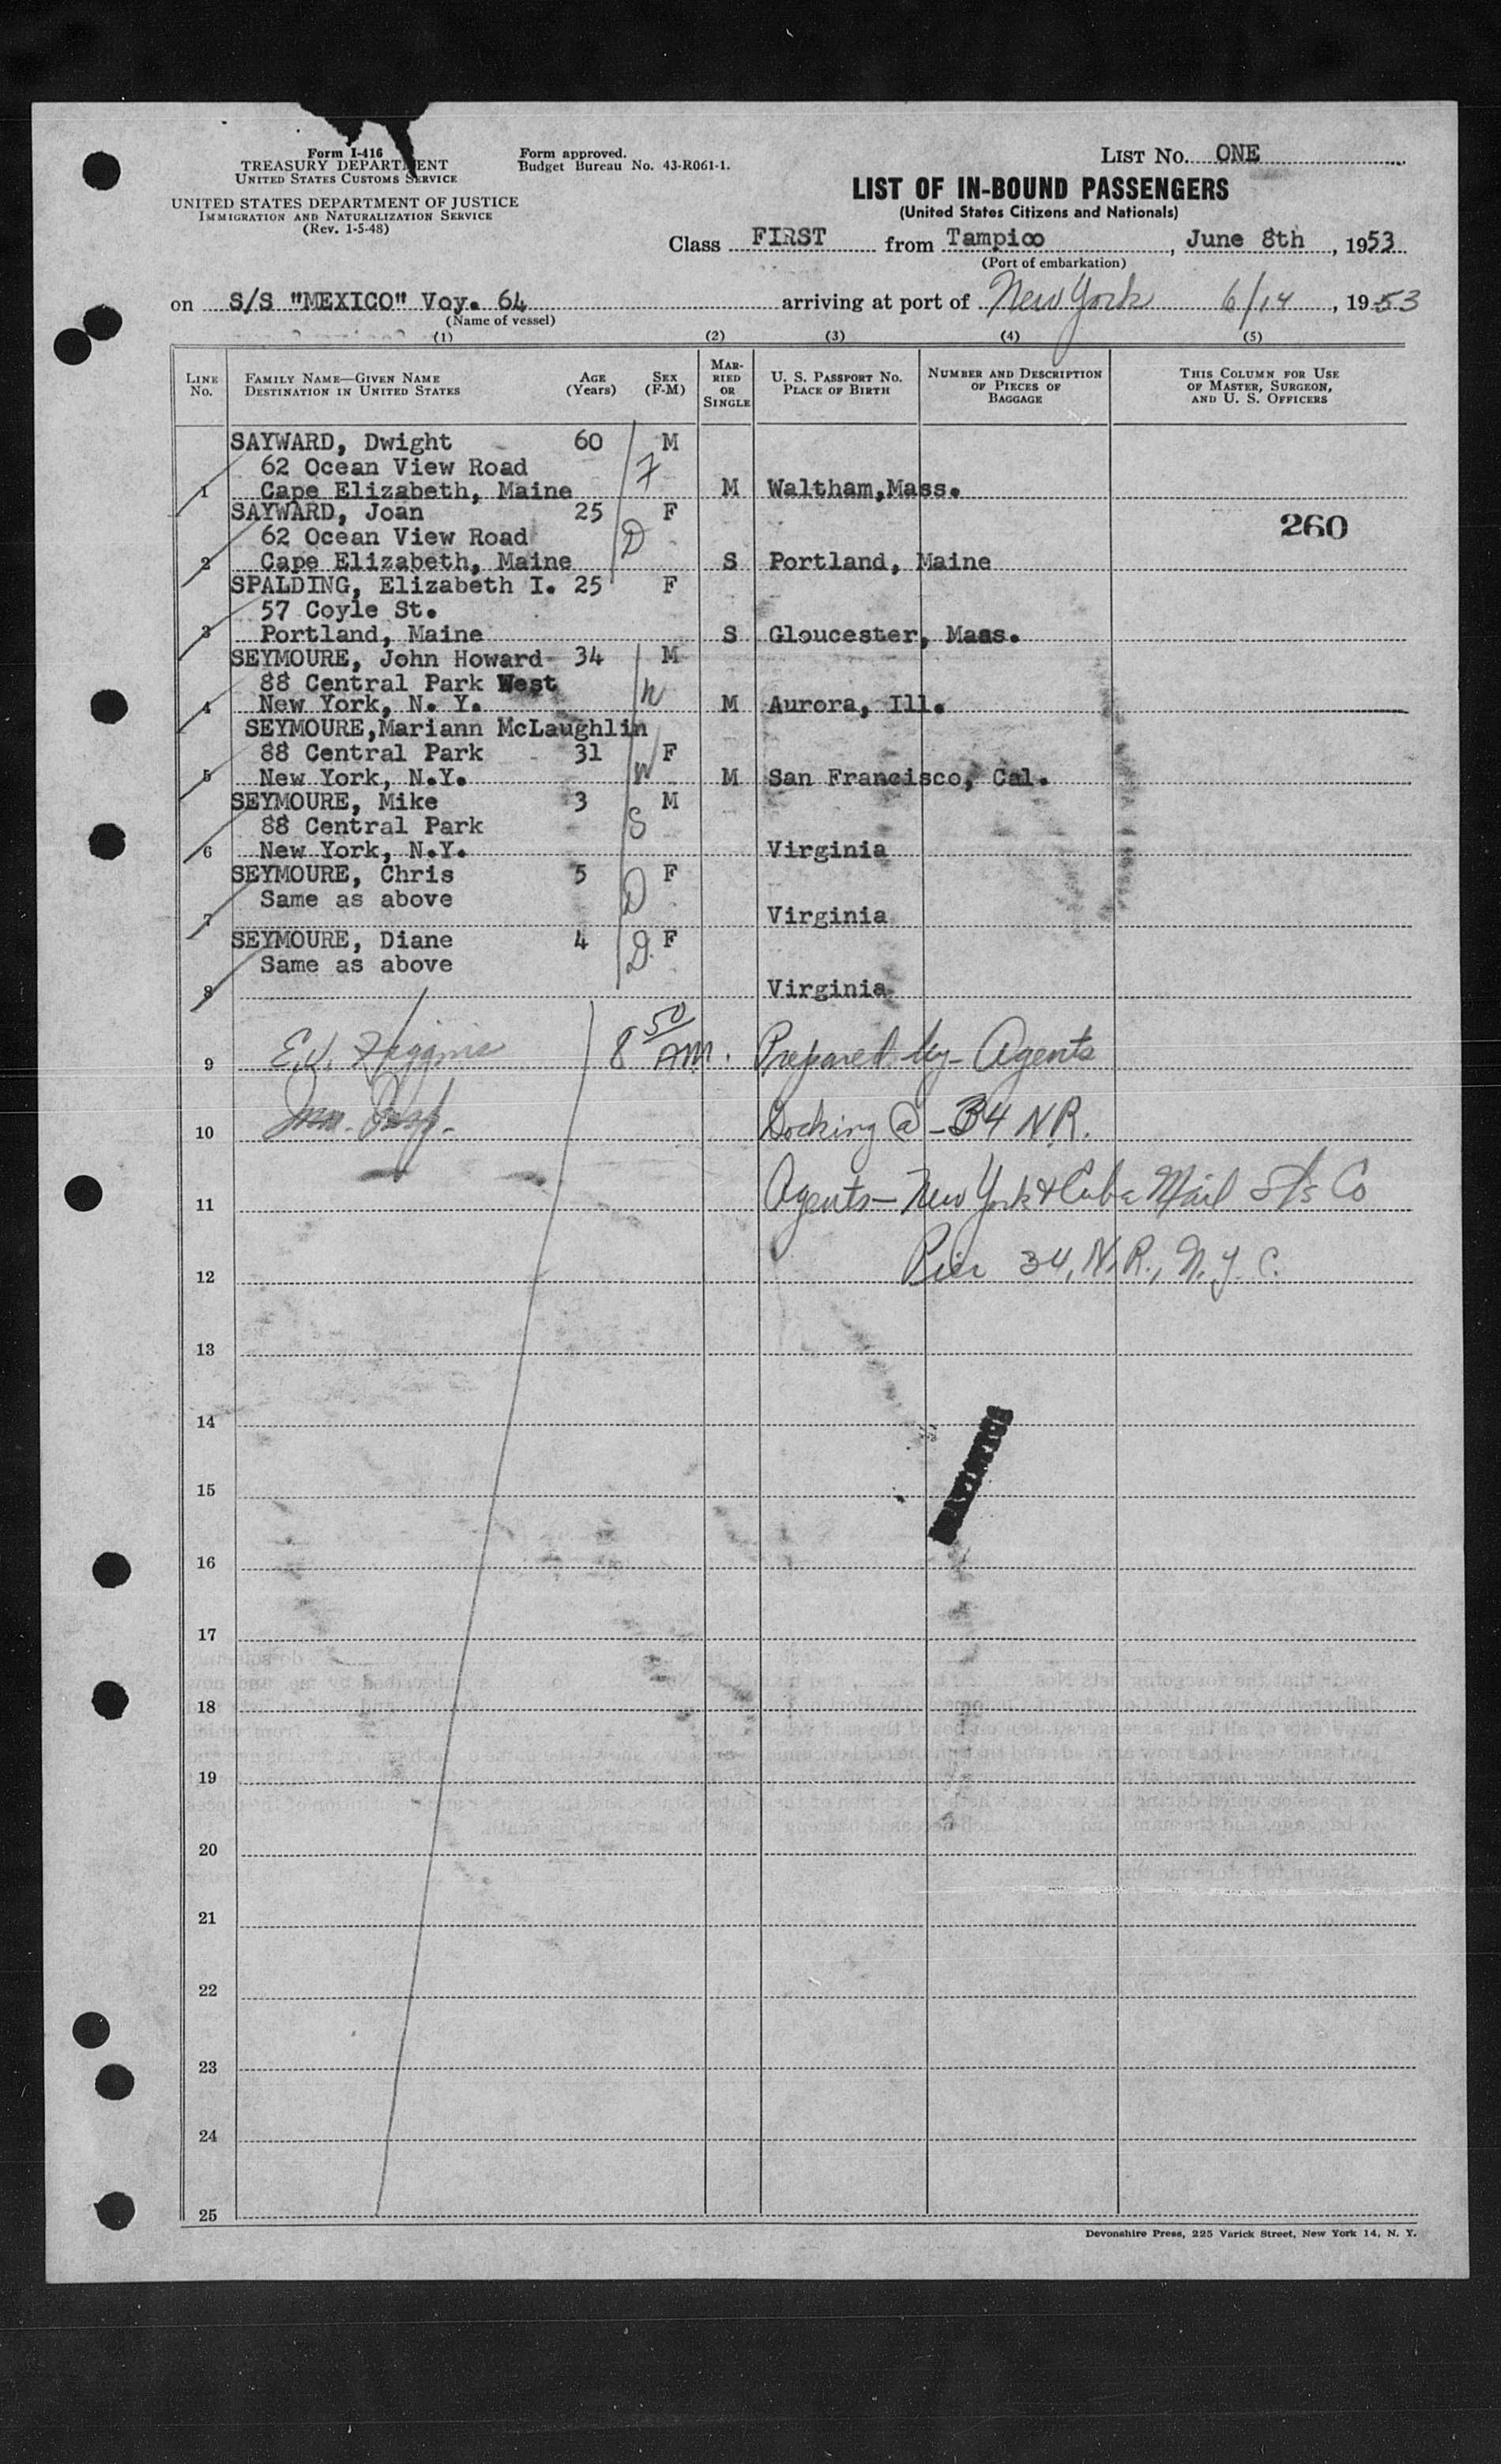 Form I-416
TREASURY DEPARTMENT
UNITED STATES CUSTOMS SERVICE
UNITED STATES DEPARTMENT OF JUSTICE
IMMIGRATION AND NATURALIZATION SERVICE
(Rev. 1-5-48)
Form approved.
Budget Bureau No. 43-R061-1.
LIST NO. ONE
LIST OF IN-BOUND PASSENGERS
(United States Citizens and Nationals)
Class FIRST from Tampico, June 8th, 1953
(Port of embarkation)
on S/S "MEXICO" Voy. 64 arriving at port of New York 6/14, 1953
(Name of vessel)
(1) (2) (3) (4) (5)
LINE NO.
FAMILY NAME—GIVEN NAME
DESTINATION IN UNITED STATES
AGE (Years)
SEX (F-M)
MARRIED OR SINGLE
U. S. PASSPORT NO.
PLACE OF BIRTH
NUMBER AND DESCRIPTION OF PIECES OF BAGGAGE
THIS COLUMN FOR USE OF MASTER, SURGEON, AND U. S. OFFICERS
SAYWARD, Dwight 60 M
62 Ocean View Road F
1 Cape Elizabeth, Maine M Waltham,Mass.
SAYWARD, Joan 25 F
260
62 Ocean View Road D
2 Cape Elizabeth, Maine S Portland, Maine
SPALDING, Elizabeth I. 25 F
57 Coyle St.
3 Portland, Maine S Gloucester, Mass.
SEYMOURE, John Howard 34 M
88 Central Park West
4 New York, N. Y. M Aurora, Ill.
SEYMOURE,Mariann McLaughlin
88 Central Park 31 F
5 New York, N.Y. M San Francisco, Cal.
SEYMOURE, Mike 3 M
88 Central Park S
6 New York, N.Y. Virginia
SEYMOURE, Chris 5 F
Same as above D
7 Virginia
SEYMOURE, Diane 4 D. F
Same as above
8 Virginia
9 8 50 AM. Prepared by Agents
10 Docking @ - 34 N.R.
11 Agents — New York & Cuba Mail S/S Co
12 Pier 34, N.R., N.Y.C.
13
14
15
16
17
18
19
20
21
22
23
24
25
Devonshire Press, 225 Varick Street, New York 14, N. Y.